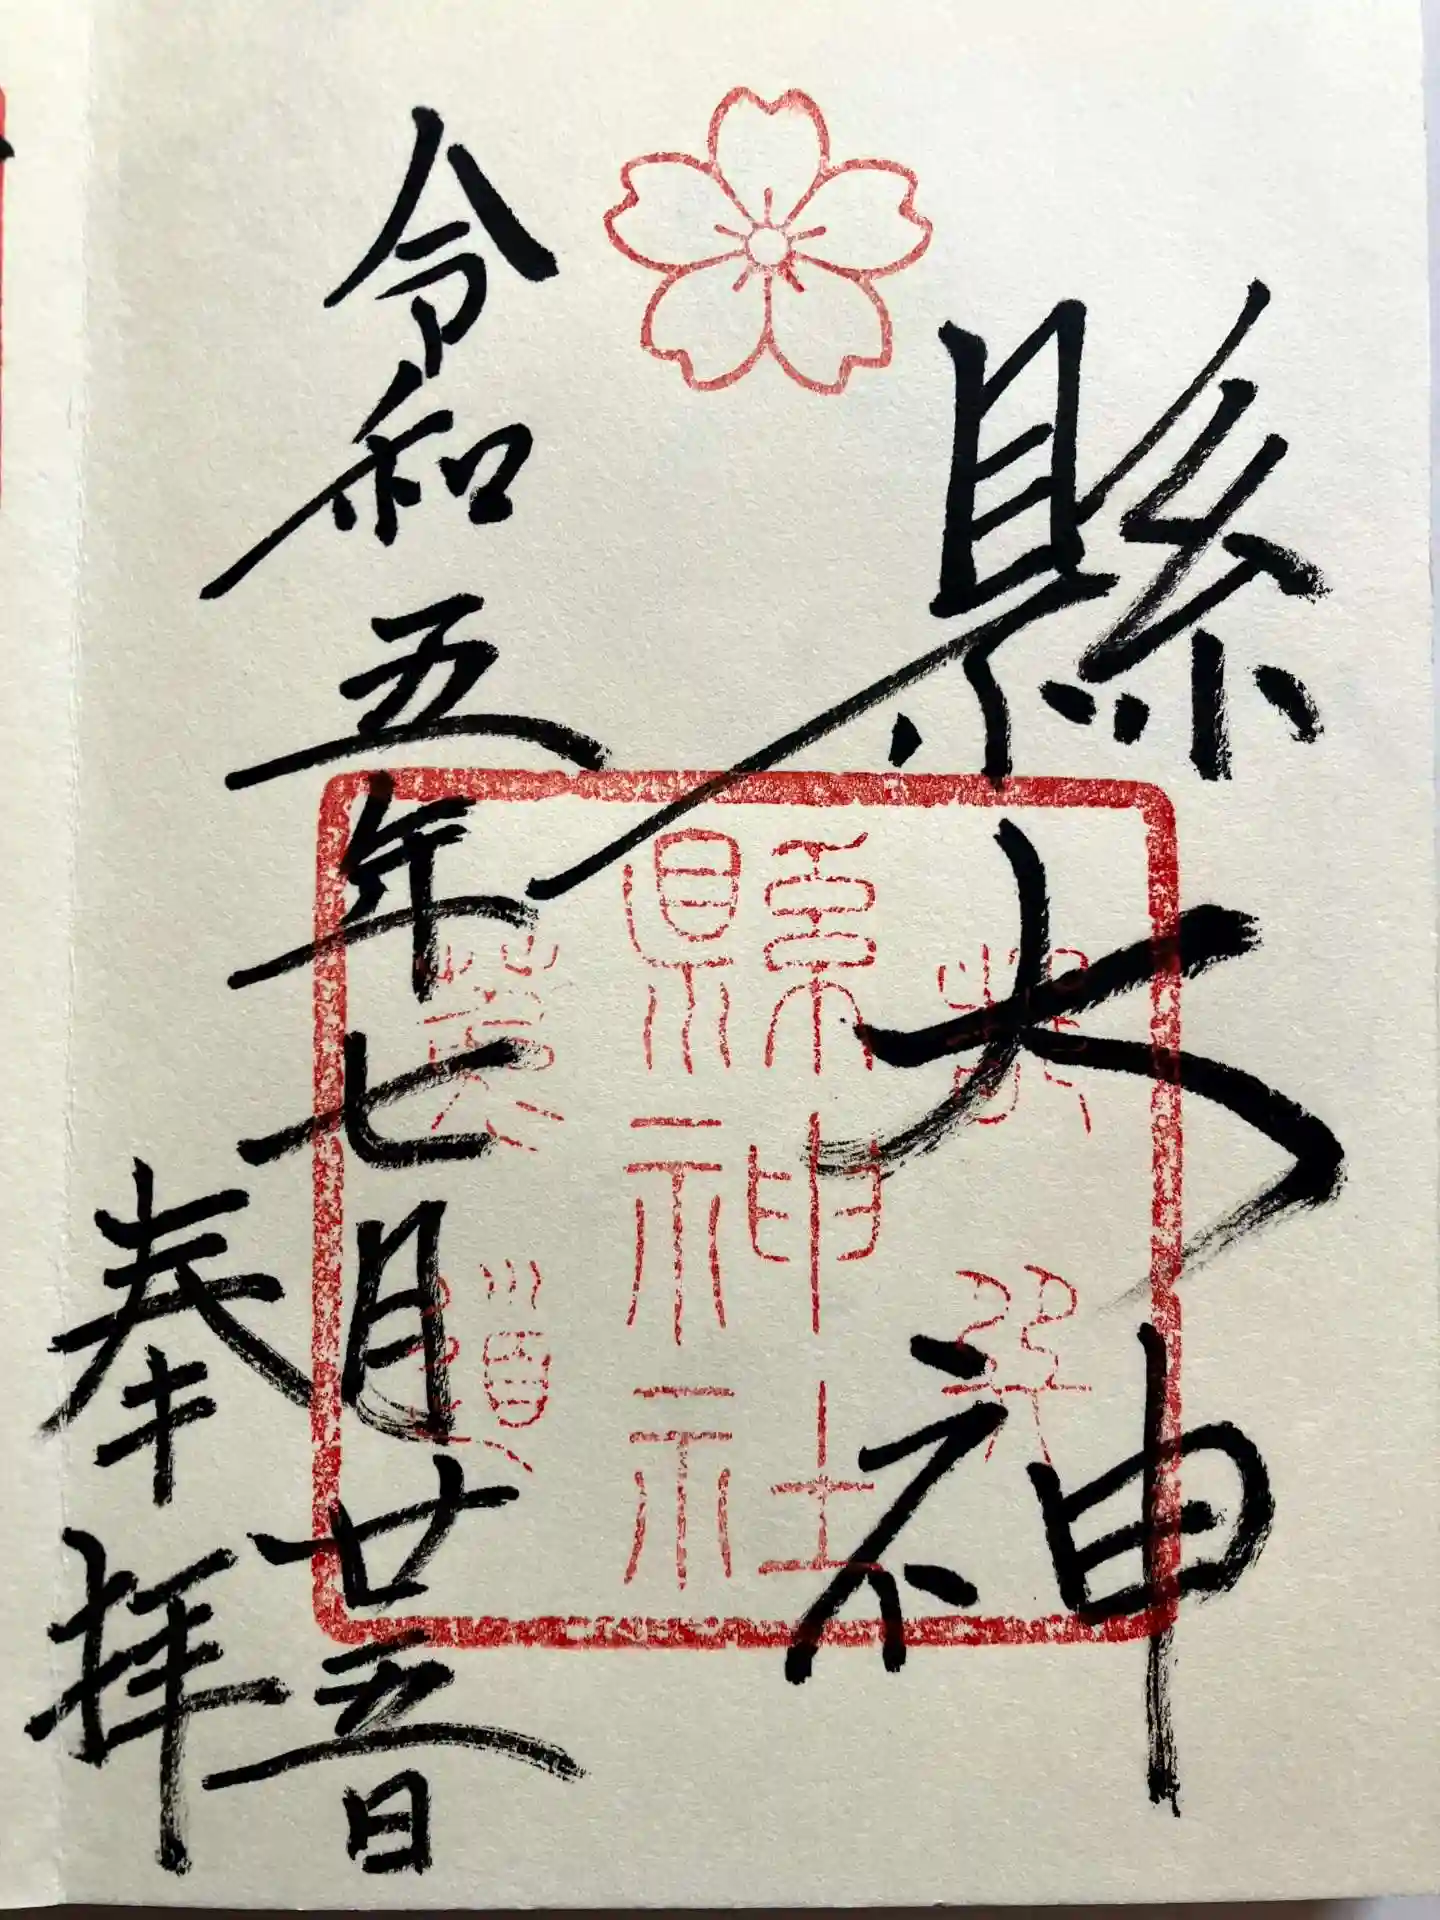 縣大神
縣神社
令和五年七月廿五日
奉拝